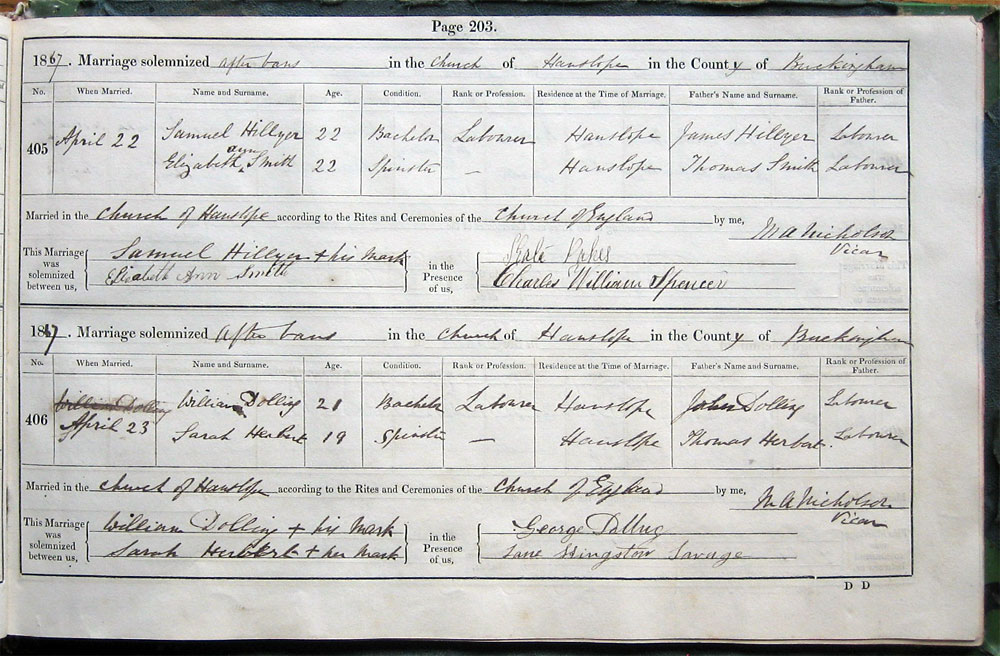 Page 203.
1867. Marriage solemnized after bans in the Church of Hanslope in the County of Buckingham
No. When Married. Name and Surname. Age. Condition. Rank or Profession. Residence at the Time of Marriage. Father's Name and Surname. Rank or Profession of Father.
405 April 22 Samuel Hillyer 22 Bachelor Labourer Hanslope James Hillyer Labourer
Elizabeth Ann Smith 22 Spinster — Hanslope Thomas Smith Labourer
Married in the Church of Hanslope according to the Rites and Ceremonies of the Church of England by me, M A Nicholson
Vicar
This Marriage was solemnized between us, Samuel Hillyer + his Mark
Elizabeth Ann Smith
in the Presence of us,
Charles William Spencer
1867. Marriage solemnized after bans in the Church of Hanslope in the County of Buckingham
No. When Married. Name and Surname. Age. Condition. Rank or Profession. Residence at the Time of Marriage. Father's Name and Surname. Rank or Profession of Father.
406 William Dolling William Dolling 21 Bachelor Labourer Hanslope John Dolling Labourer
April 23 Sarah Herbert 19 Spinster — Hanslope Thomas Herbert Labourer
Married in the Church of Hanslope according to the Rites and Ceremonies of the Church of England by me, M A Nicholson
Vicar
This Marriage was solemnized between us, William Dolling + his Mark
Sarah Herbert + her Mark
in the Presence of us, George
Jane Savage
D D